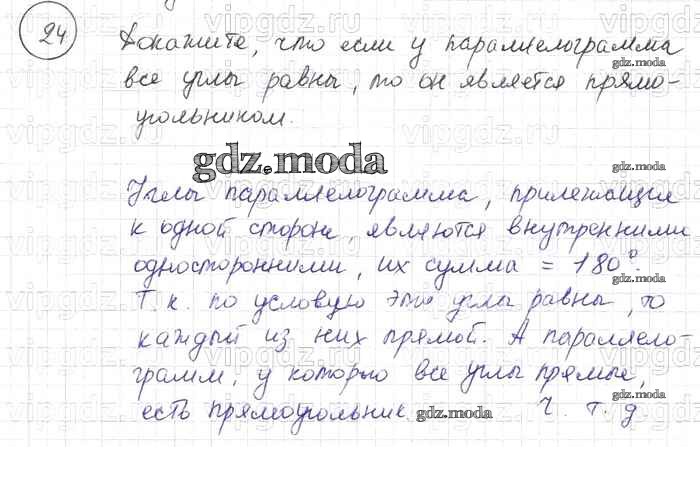 24
Докажите, что если у параллелограмма
gdz.moda
все углы равны, то он является прямо-
угольником.
vipgdz.ru
gdz.moda
gdz.moda
Углы параллелограмма, прилежащие
к одной стороне, являются внутренними
gdz.moda
односторонними, их сумма = 180°.
gdz.moda
Т. к. по условую эти углы равны, то
каждый из них прямой. А параллело-
gdz.moda
грамм, у которго все углы прямые,
есть прямоугольник.
gdz.moda
Ч. т. д.